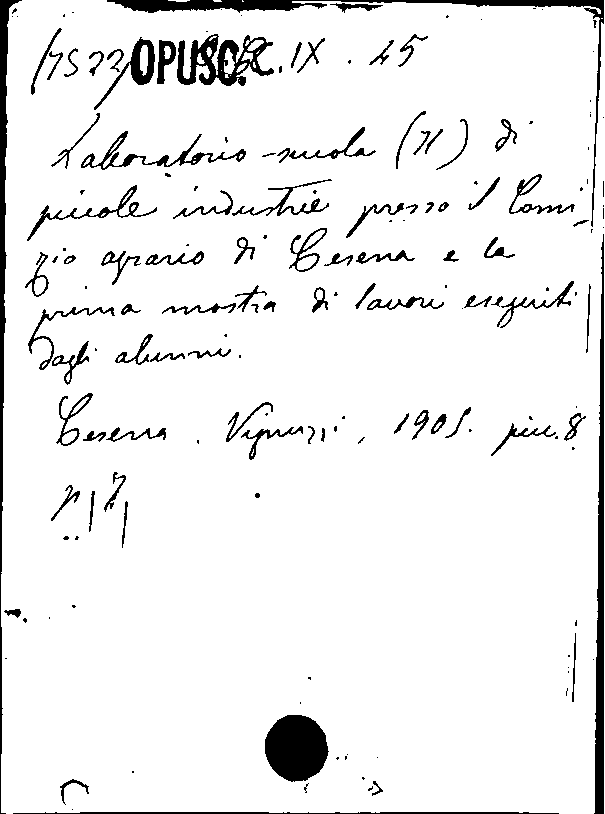 (7523) OPUSC. C. IX. 45
Laboratorio-scuola (Il) di
piccole industrie presso il Comi-
zio agrario di Cesena e la
prima mostra di lavori eseguiti
dagli alunni.
Cesena. Vignuzzi, 1905. picc. 8.